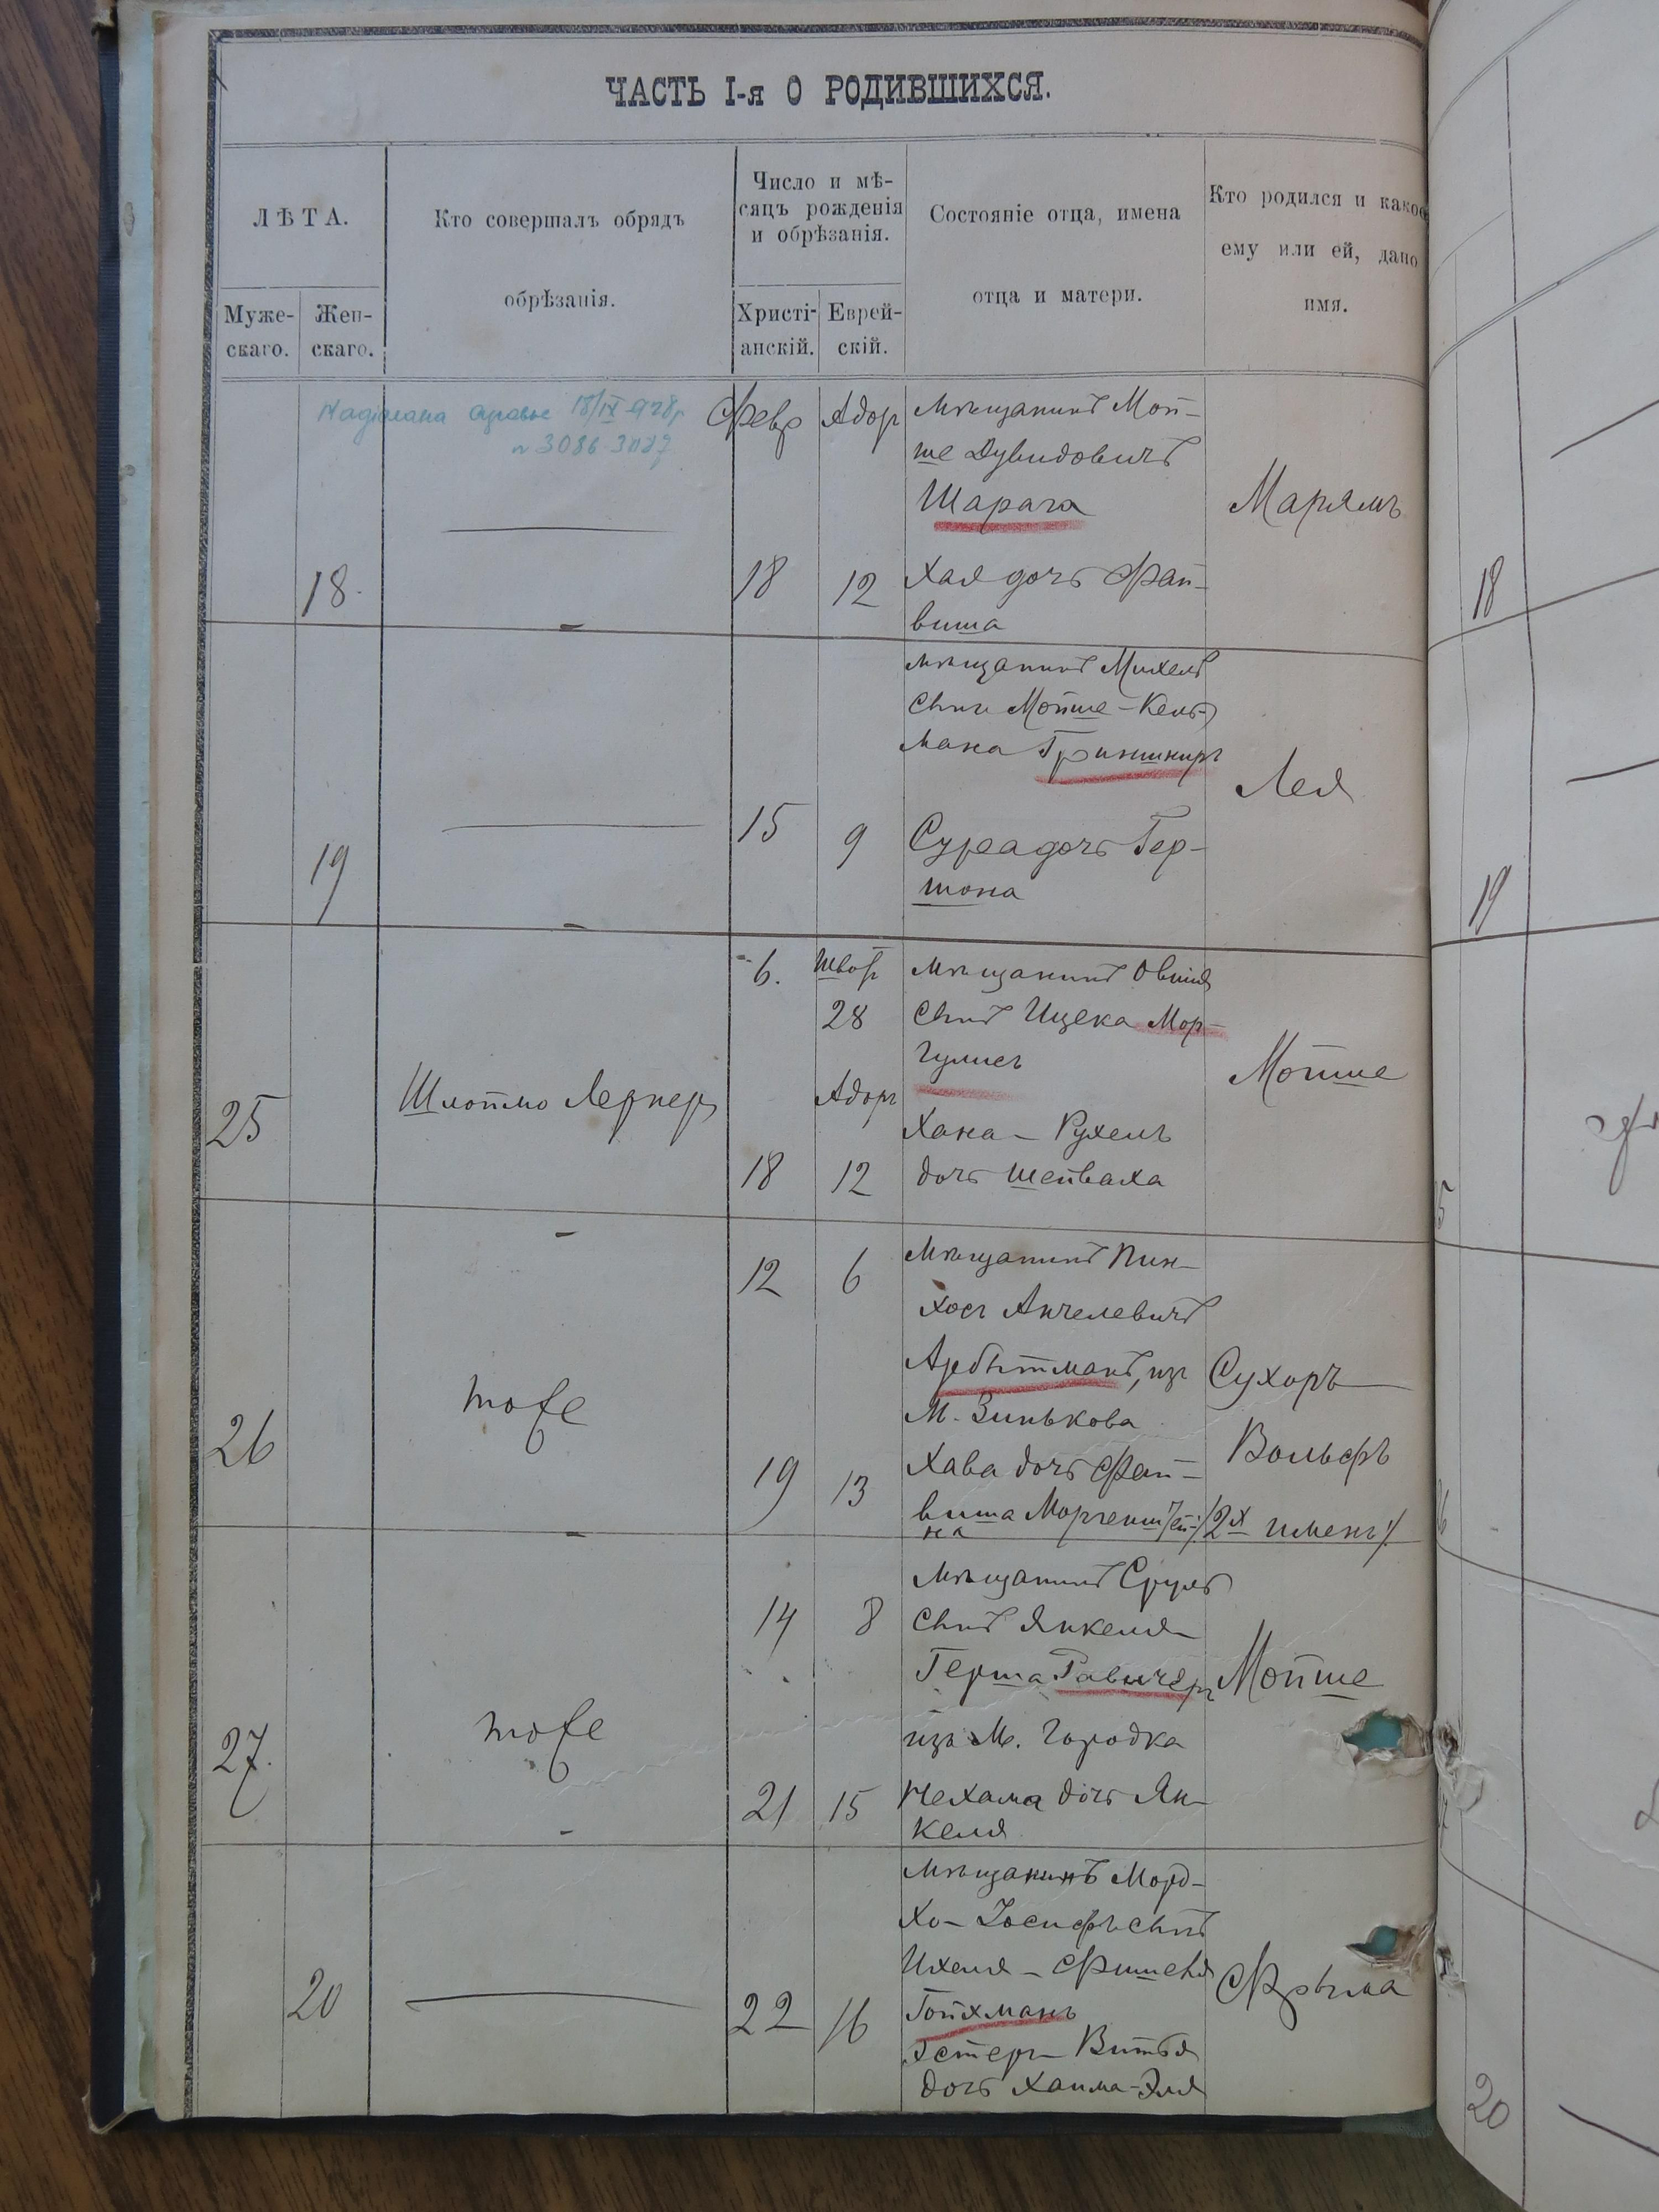 ЧАСТЬ I-я О РОДИВШИХСЯ.
ЛѢТА.
Муже-
скаго.
Жен-
скаго.
Кто совершалъ обрядъ
обрѣзанія.
Число и мѣ-
сяцъ рожденія
и обрѣзанія.
Христі-
анскій.
Еврей-
скій.
Состояніе отца, имена
отца и матери.
Кто родился и какое
ему или ей, дано
имя.
18/IX 928
18
Февр
18
Адор
12
Мѣщанинъ Мой-
ше Дувидовичъ
Шарага
Хая дочь Фай-
виша
Марямъ
19
15
9
мѣщанинъ Михель
сынъ Мойше-Кель-
мана
Сура дочь Гер-
шона
Лея
25
Шлоймо Лернеръ
6.
18
Шват
28
Адоръ
12
Мѣщанинъ Овшія
сынъ Ицека Мор-
гулисъ
Хана-Рухель
дочь Шейваха
Мойше
26
тоже
12
19
6
13
Мѣщанинъ Пин-
хосъ Анчелевичъ
Арбытманъ, изъ
М. Зинькова
Хава дочь Фай-
виша
Сухоръ
Вольфъ
/2х именъ/
27.
тоже
14
21
8
15
Мѣщанинъ Сруль
сынъ Янкеля
Герша Равичеръ
изъ М. Городка
Нехама дочь Ян-
келя
Мойше
20
22
16
Мѣщанинъ Морд-
ко-Іосифъ сынъ
Ихеля-Фишеля
Гойхманъ
Эстеръ-Витя
дочь Хаима-Эля
Фрыма
18
19
20